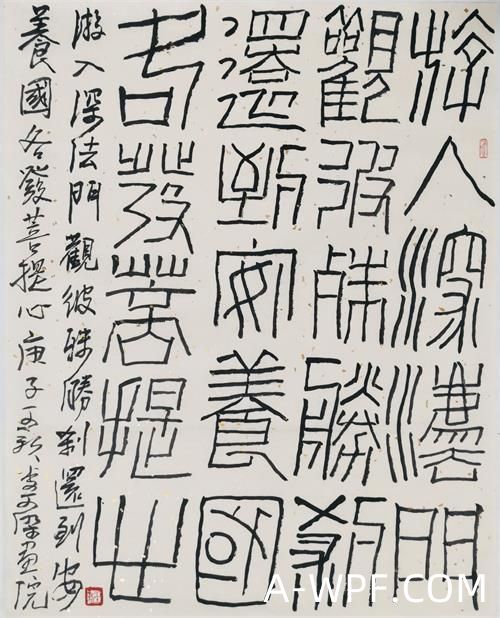 游入深法門
觀彼殊勝刹
還到安養國
各發菩提心
游入深法門觀彼殊勝刹還到安
養國各發菩提心庚子李可染畫院
A-WPF.COM